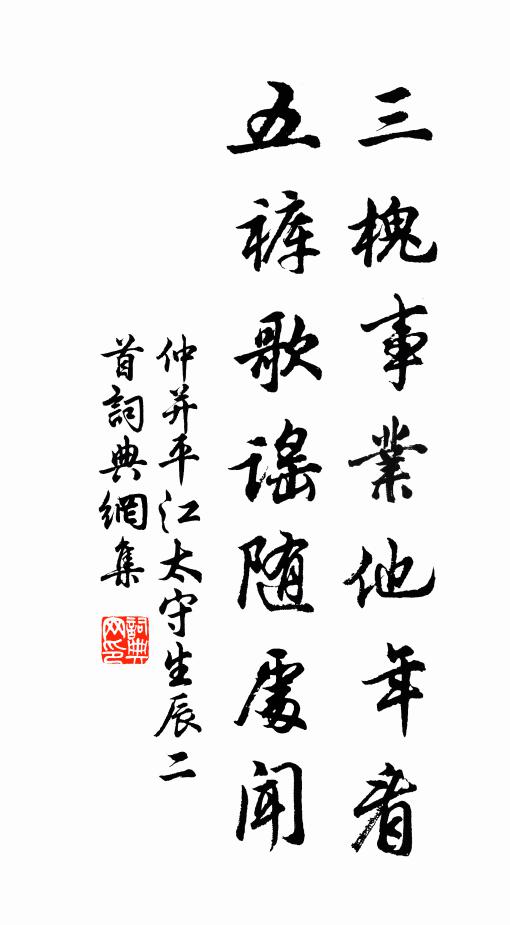 三槐事業他年看
五裤歌謡随處聞
仲并平江太守生辰二
首詞典網集
詞典网印